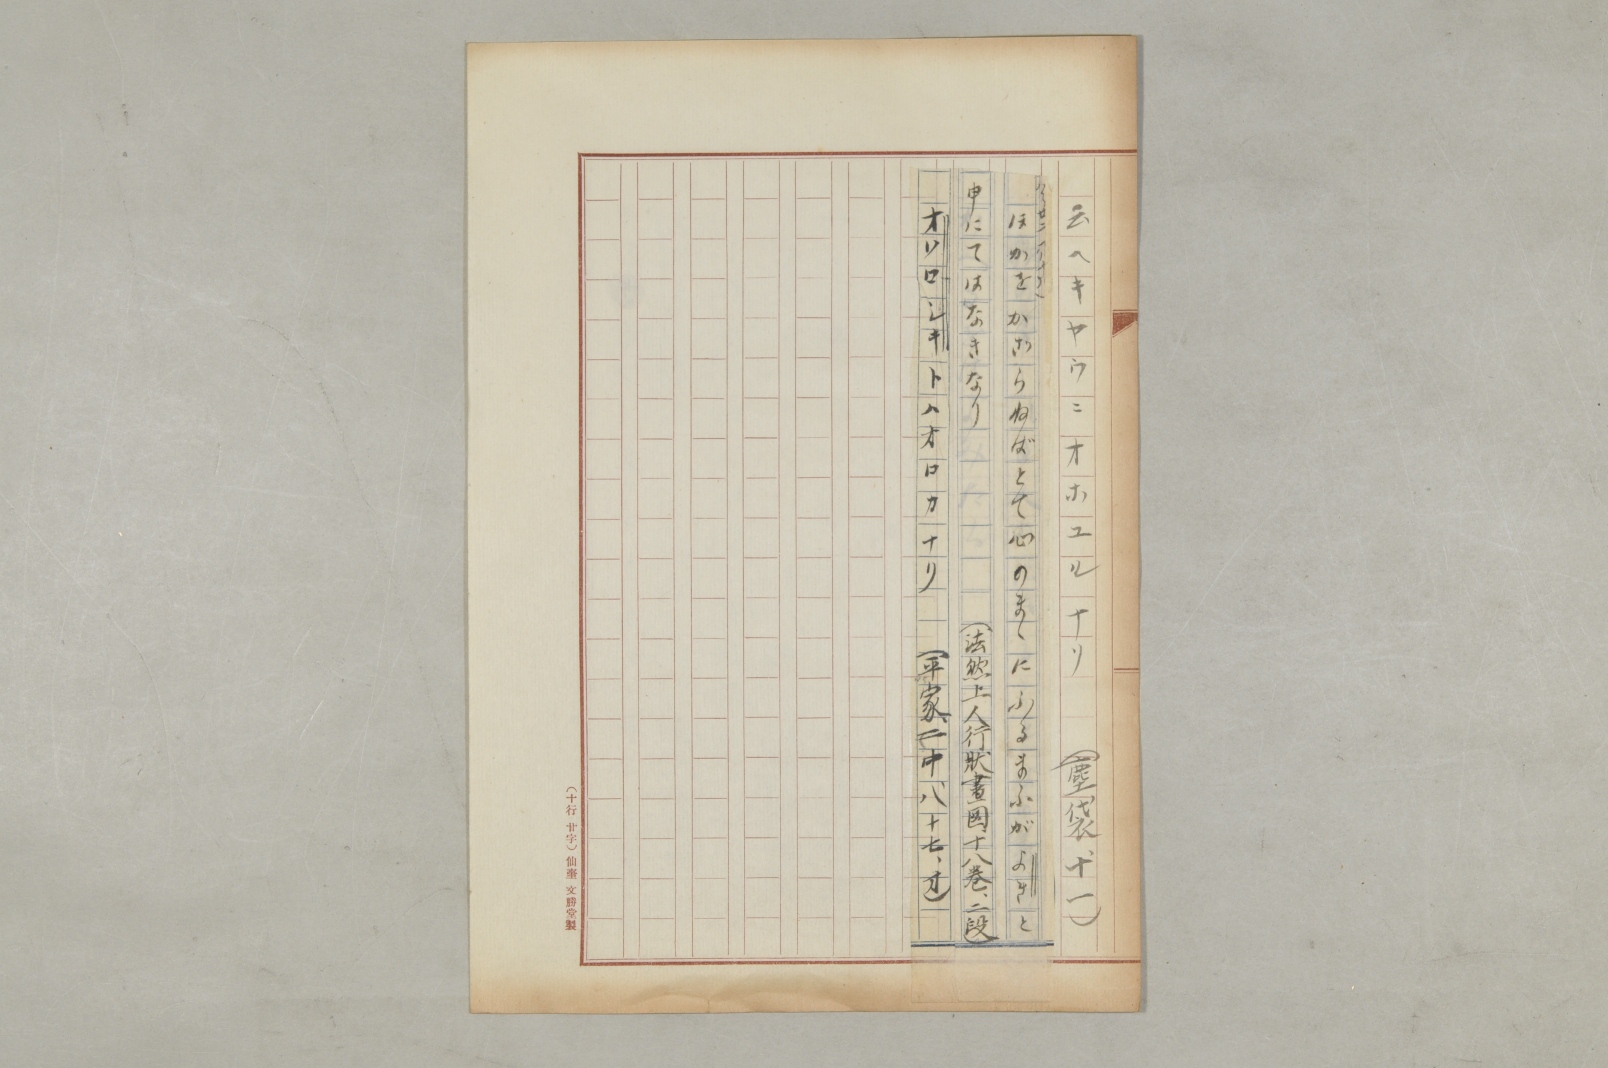 云ヘキヤウニオホユルナリ　（塵袋、十一）
ほかをかざらねばとて心のまゝにふるまふがよきと
申にてはなきなり　（法然上人行狀畫図、十八巻、二段）
オソロシキトハオロカナリ　（平家、二中、八十七、オ）
（十行 廿字）仙臺 文勝堂製